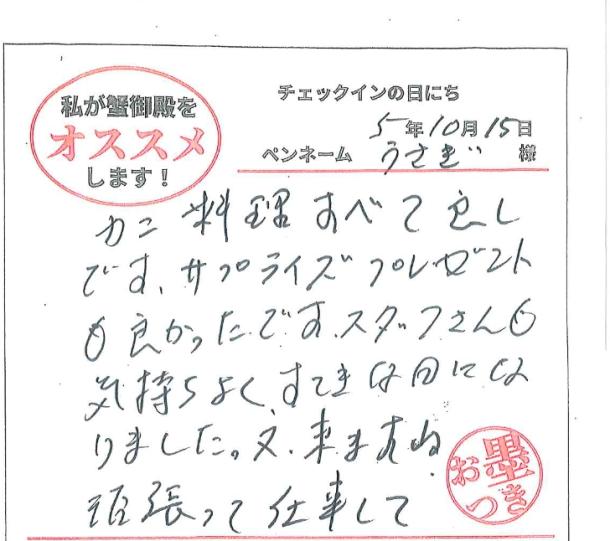 私が蟹御殿を
オススメ
します！
チェックインの日にち
5年10月15日
ペンネーム うさぎ 様
カニ料理すべて良し
です、サプライズプレゼント
も良かったです。スタッフさんも
気持ちよく、すてきな日にな
りました。又、来ますね、
頑張って仕事して
お墨
つき